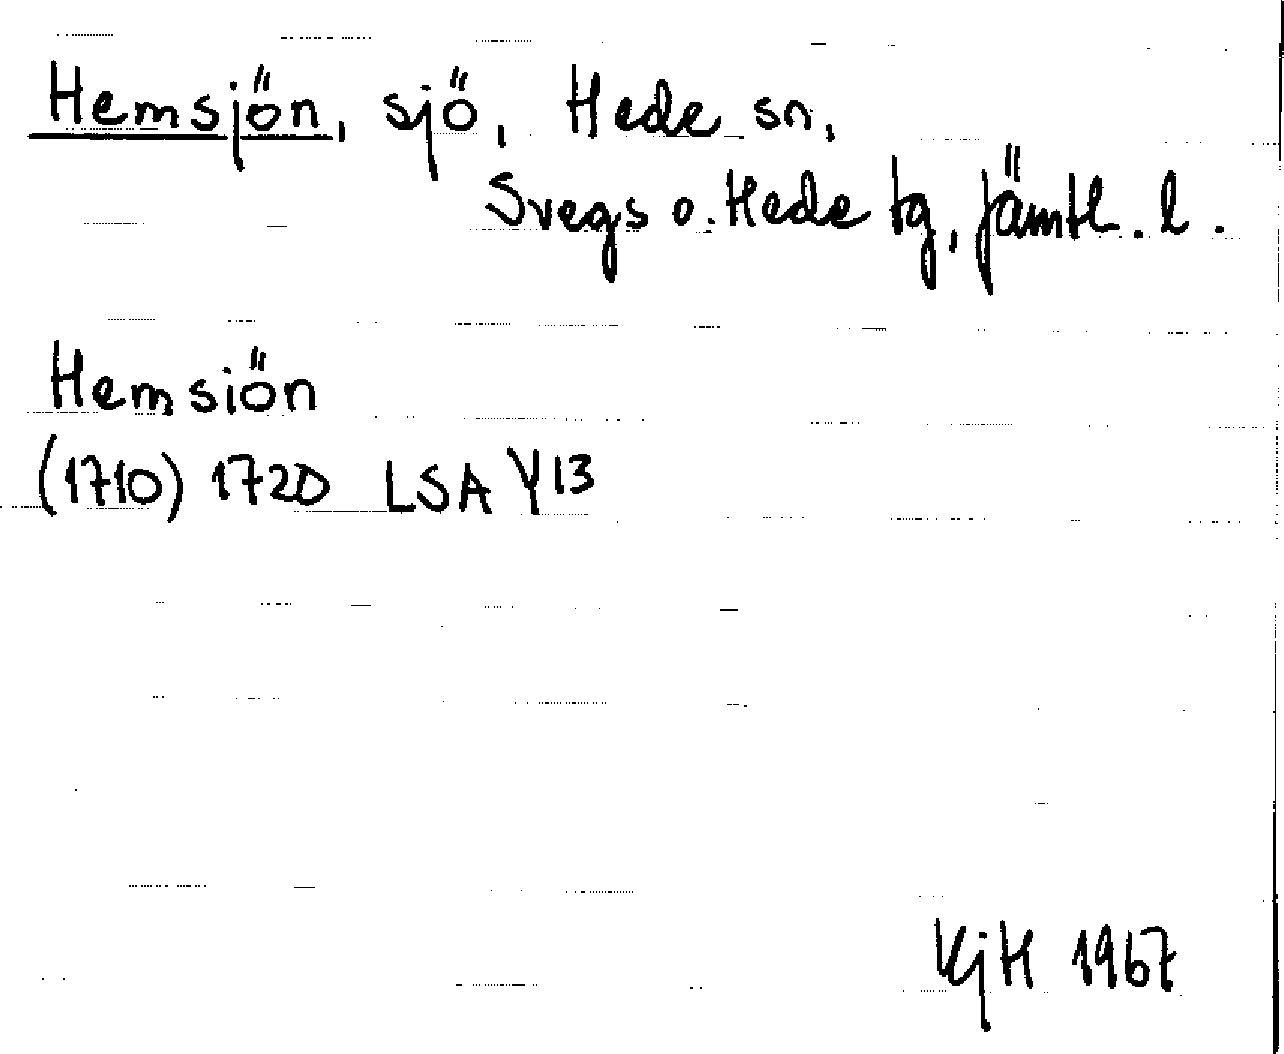 Hemsjön, sjö, Hede sn,
Svegs o. Hede tg, Jämtl. l.
Hemsiön
(1710) 1720 LSA Y13
KjH 1967